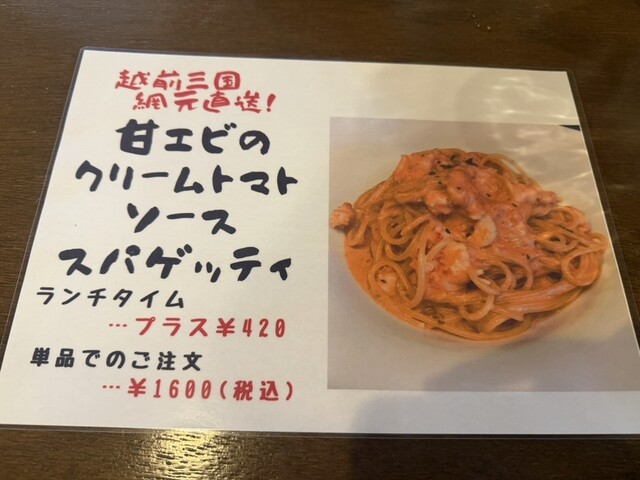 越前三国
網元直送!
甘エビの
クリームトマト
ソース
スパゲッティ
ランチタイム
…プラス¥420
単品でのご注文
…¥1600(税込)